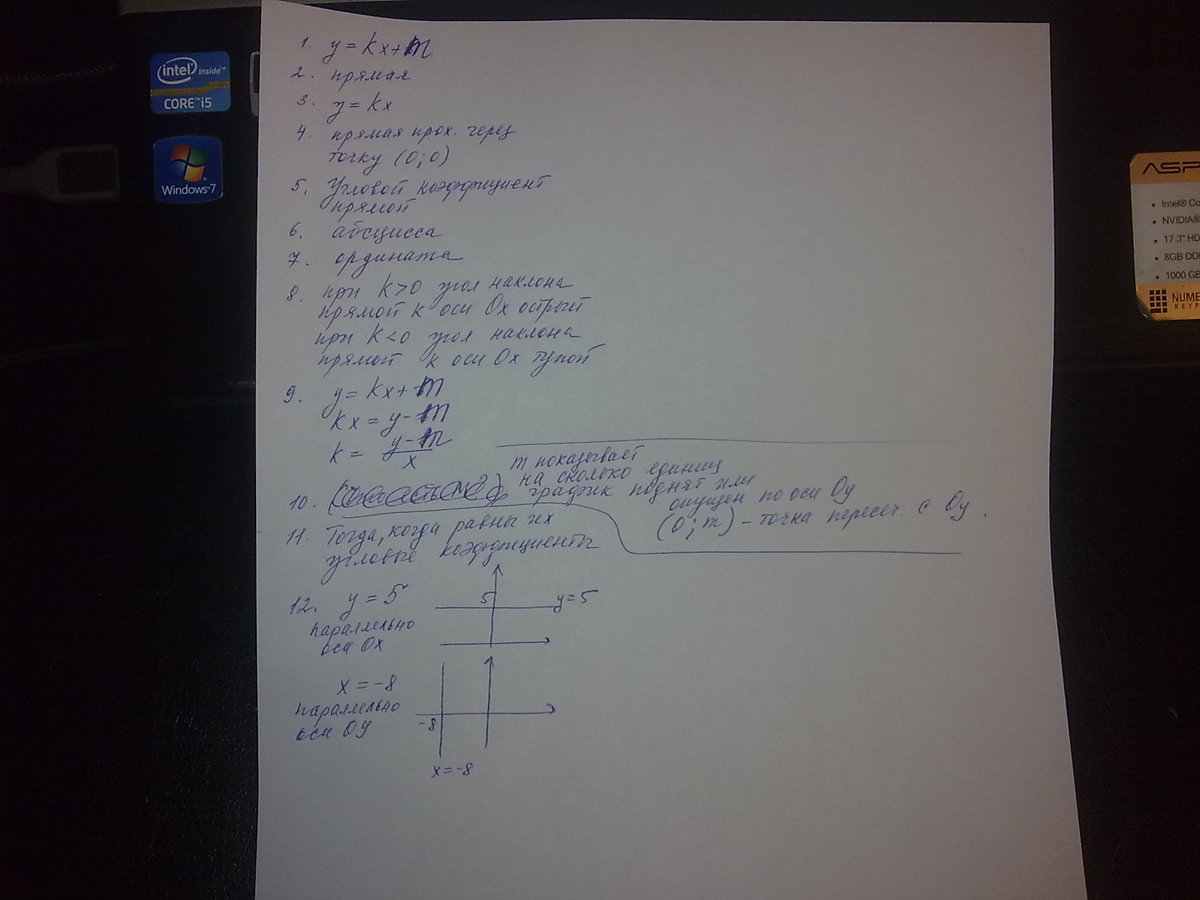 intel inside™
CORE™ i5
Windows®7
1. y = kx + m
2. прямая
3. y = kx
4. прямая прох. через
точку (0; 0)
5. Угловой коэффициент
прямой
6. абсцисса
7. ордината
8. при k > 0 угол наклона
прямой к оси Ox острый
при k < 0 угол наклона
прямой к оси Ox тупой
9. y = kx + m
kx = y - m
k = (y - m)/x
10.
m показывает
на сколько единиц
график поднят или
опущен по оси Oy
(0; m) – точка пересеч. с Oy.
11. Тогда, когда равны их
угловые коэффициенты
12. y = 5
5
y = 5
параллельно
оси Ox
x = -8
параллельно
оси Oy
-8
x = -8
ASP
• Intel® Co
• NVIDIA®
• 17.3" HD
• 8GB DD
• 1000 GB
NUME
KEYP